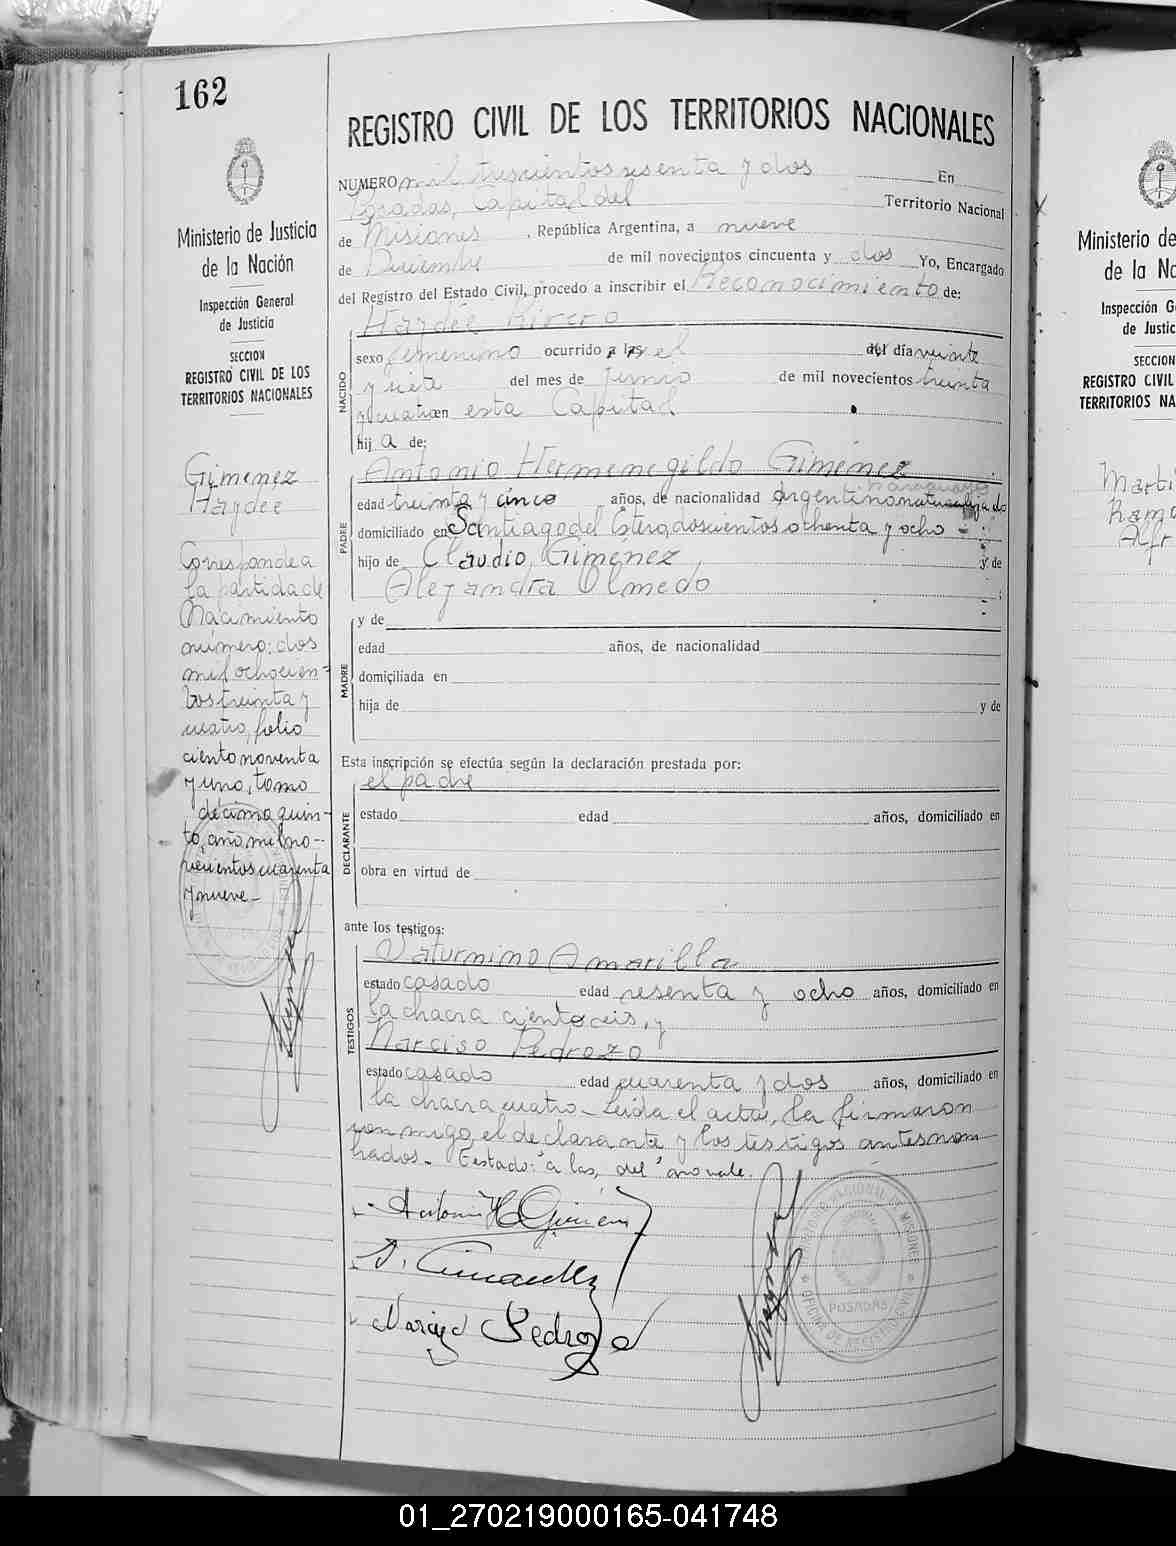 162
REGISTRO CIVIL DE LOS TERRITORIOS NACIONALES
Ministerio de Justicia
de la Nación
Inspección General
de Justicia
SECCION
REGISTRO CIVIL DE LOS
TERRITORIOS NACIONALES
Gimenez
Haydée
Corresponde a
la partida de
Nacimiento
número: dos
mil ochocien-
tos treinta y
cuatro, folio
ciento noventa
y uno, tomo
décimo quin-
to, año mil no-
vecientos cuarenta
y nueve.-
NUMERO mil trescientos sesenta y dos En
Posadas, Capital del Territorio Nacional
de Misiones, República Argentina, a nueve
de Diciembre de mil novecientos cincuenta y dos Yo, Encargado
del Registro del Estado Civil, procedo a inscribir el Reconocimiento de:
Haydée Rivero
NACIDO
sexo femenino ocurrido a las el del día veinte
y siete del mes de Junio de mil novecientos treinta
y cuatro en esta Capital
hij a de:
Antonio Hermenegildo Giménez
paraguayo
PADRE
edad treinta y cinco años, de nacionalidad argentino naturalizado
domiciliado en Santiago del Estero, doscientos ochenta y ocho -
hijo de Claudio Giménez y de
Alejandra Olmedo
y de
MADRE
edad años, de nacionalidad
domiciliada en
hija de y de
Esta inscripción se efectúa según la declaración prestada por:
el padre
DECLARANTE
estado edad años, domiciliado en
obra en virtud de
ante los testigos:
TESTIGOS
Saturnino Amarilla
estado casado edad sesenta y ocho años, domiciliado en
la chacra ciento seis, y
Narciso Pedrozo
estado casado edad cuarenta y dos años, domiciliado en
la chacra cuatro.- Leída el acta, la firmaron
conmigo, el declarante y los testigos antesnom-
brados.- Testado: "a las, del" no vale.
Antonio H Gimenez
Narciso Pedrozo
TERRITORIO NACIONAL DE MISIONES
POSADAS
OFICINA DE REGISTRO CIVIL
Ministerio de
de la Na
Inspección G
de Justic
SECCION
REGISTRO CIVIL
TERRITORIOS NA
Marti
Ramo
Alfr
01_270219000165-041748